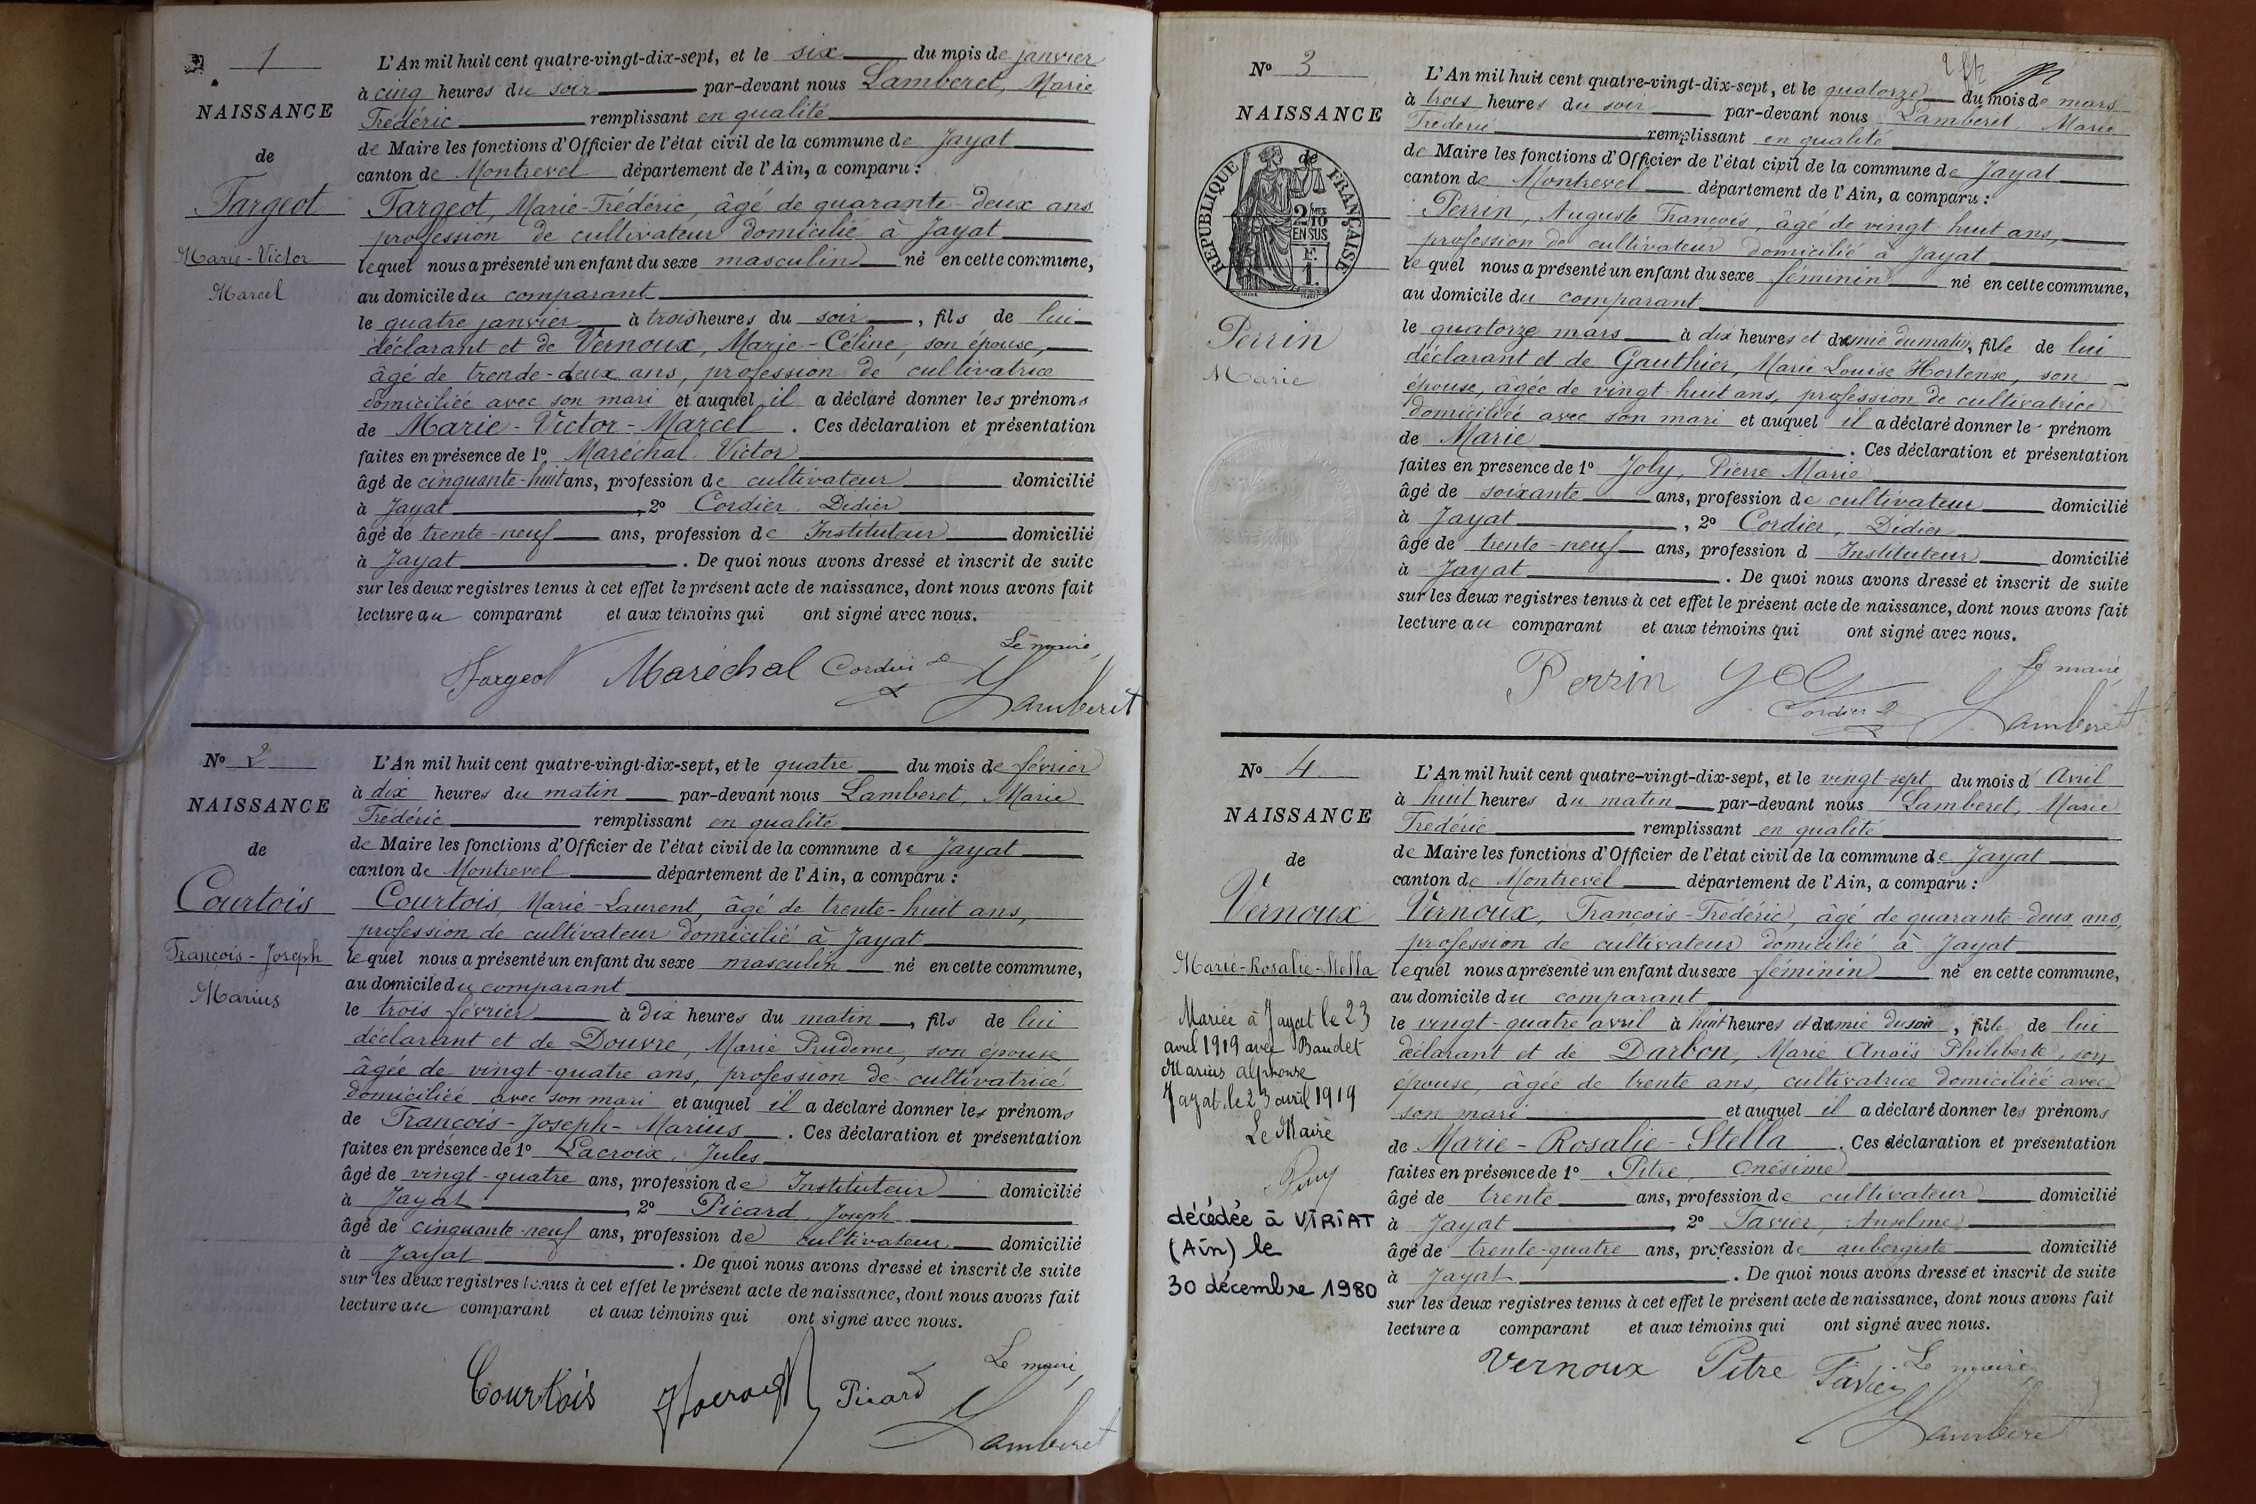 1
NAISSANCE
de
Fargeot
Marie-Victor
Marcel
L'An mil huit cent quatre-vingt-dix-sept, et le six du mois de janvier
à cinq heures du soir par-devant nous Lamberet, Marie
Frédéric remplissant en qualité
de Maire les fonctions d'Officier de l'état civil de la commune de Jayat
canton de Montrevel département de l'Ain, a comparu :
Fargeot, Marie-Frédéric, âgé de quarante-deux ans
profession de cultivateur domicilié à Jayat
lequel nous a présenté un enfant du sexe masculin né en cette commune,
au domicile du comparant
le quatre janvier à trois heures du soir, fils de lui
déclarant et de Vernoux, Marie-Céline, son épouse,
âgé de trende-deux ans, profession de cultivatrice
domiciliée avec son mari et auquel il a déclaré donner les prénoms
de Marie-Victor-Marcel. Ces déclaration et présentation
faites en présence de 1° Maréchal Victor
âgé de cinquante-huit ans, profession de cultivateur domicilié
à Jayat, 2° Cordier Didier
âgé de trente-neuf ans, profession de Instituteur domicilié
à Jayat. De quoi nous avons dressé et inscrit de suite
sur les deux registres tenus à cet effet le présent acte de naissance, dont nous avons fait
lecture au comparant et aux témoins qui ont signé avec nous.
Le maire,
Fargeot Maréchal Cordier Lamberet
N° 2
NAISSANCE
de
Courtois
François-Joseph
Marius
L'An mil huit cent quatre-vingt-dix-sept, et le quatre du mois de février
à dix heures du matin par-devant nous Lamberet, Marie
Frédéric remplissant en qualité
de Maire les fonctions d'Officier de l'état civil de la commune de Jayat
canton de Montrevel département de l'Ain, a comparu :
Courtois, Marie-Laurent, âgé de trente-huit ans,
profession de cultivateur domicilié à Jayat
lequel nous a présenté un enfant du sexe masculin né en cette commune,
au domicile du comparant
le trois février à dix heures du matin, fils de lui
déclarant et de Douvre, Marie Prudence, son épouse
âgée de vingt-quatre ans, profession de cultivatrice
domiciliée avec son mari et auquel il a déclaré donner les prénoms
de François-Joseph-Marius. Ces déclaration et présentation
faites en présence de 1° Lacroix, Jules
âgé de vingt-quatre ans, profession de Instituteur domicilié
à Jayat, 2° Picard Joseph
âgé de cinquante-neuf ans, profession de cultivateur domicilié
à Jayat. De quoi nous avons dressé et inscrit de suite
sur les deux registres tenus à cet effet le présent acte de naissance, dont nous avons fait
lecture au comparant et aux témoins qui ont signé avec nous.
Le maire,
Courtois JLacroix Picard Lamberet
N° 3
NAISSANCE
de
RÉPUBLIQUE FRANÇAISE
2/10
EN SUS
F.
1.
Perrin
Marie
L'An mil huit cent quatre-vingt-dix-sept, et le quatorze du mois de mars
à trois heures du soir par-devant nous Lamberet, Marie
Frédéric remplissant en qualité
de Maire les fonctions d'Officier de l'état civil de la commune de Jayat
canton de Montrevel département de l'Ain, a comparu :
Perrin, Auguste François, âgé de vingt-huit ans,
profession de cultivateur domicilié à Jayat
lequel nous a présenté un enfant du sexe féminin né en cette commune,
au domicile du comparant
le quatorze mars à dix heures et demie du matin, fille de lui
déclarant et de Gauthier, Marie Louise Hortense, son
épouse, âgée de vingt-huit ans, profession de cultivatrice
domiciliée avec son mari et auquel il a déclaré donner le prénom
de Marie. Ces déclaration et présentation
faites en présence de 1° Joly, Pierre Marie
âgé de soixante ans, profession de cultivateur domicilié
à Jayat, 2° Cordier, Didier
âgé de trente-neuf ans, profession d Instituteur domicilié
à Jayat. De quoi nous avons dressé et inscrit de suite
sur les deux registres tenus à cet effet le présent acte de naissance, dont nous avons fait
lecture au comparant et aux témoins qui ont signé avec nous.
Le maire,
Perrin Joly Cordier Lamberet
N° 4
NAISSANCE
de
Vernoux
Marie-Rosalie-Stella
Mariée à Jayat le 23
avril 1919 avec Baudet
Marius alphonse
Jayat le 23 avril 1919
Le Maire
décédée à VIRIAT
(Ain) le
30 décembre 1980
L'An mil huit cent quatre-vingt-dix-sept, et le vingt-sept du mois d'Avril
à huit heures du matin par-devant nous Lamberet, Marie
Frédéric remplissant en qualité
de Maire les fonctions d'Officier de l'état civil de la commune de Jayat
canton de Montrevel département de l'Ain, a comparu :
Vernoux, François-Frédéric, âgé de quarante-deux ans,
profession de cultivateur domicilié à Jayat
lequel nous a présenté un enfant du sexe féminin né en cette commune,
au domicile du comparant
le vingt-quatre avril à huit heures et demie du soir, fille de lui
déclarant et de Darbon, Marie Anaïs Philiberte, son
épouse, âgée de trente ans, cultivatrice domiciliée avec
son mari et auquel il a déclaré donner les prénoms
de Marie-Rosalie-Stella. Ces déclaration et présentation
faites en présence de 1° Pitre, Onésime
âgé de trente ans, profession de cultivateur domicilié
à Jayat, 2° Favier, Anselme
âgé de trente-quatre ans, profession de aubergiste domicilié
à Jayat. De quoi nous avons dressé et inscrit de suite
sur les deux registres tenus à cet effet le présent acte de naissance, dont nous avons fait
lecture a comparant et aux témoins qui ont signé avec nous.
Le maire,
Vernoux Pitre Favier Lamberet